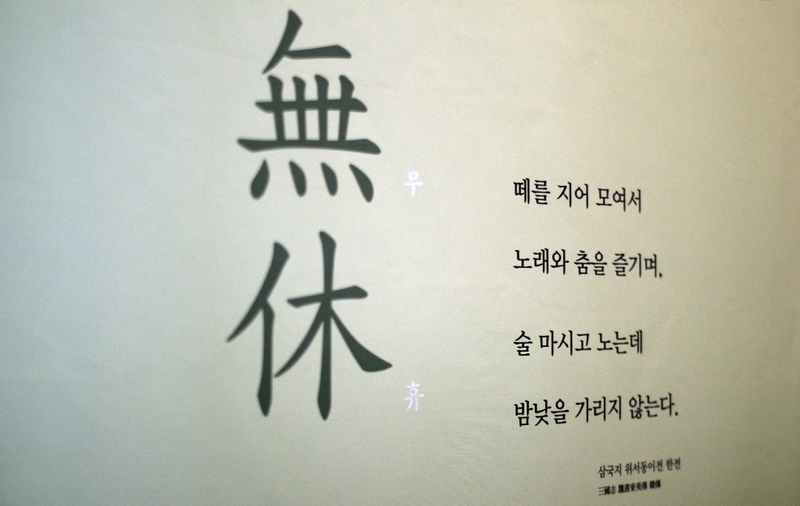 無
무
休
휴
떼를 지어 모여서
노래와 춤을 즐기며,
술 마시고 노는데
밤낮을 가리지 않는다.
삼국지 위서동이전 한전
三國志 魏書東夷傳 韓傳